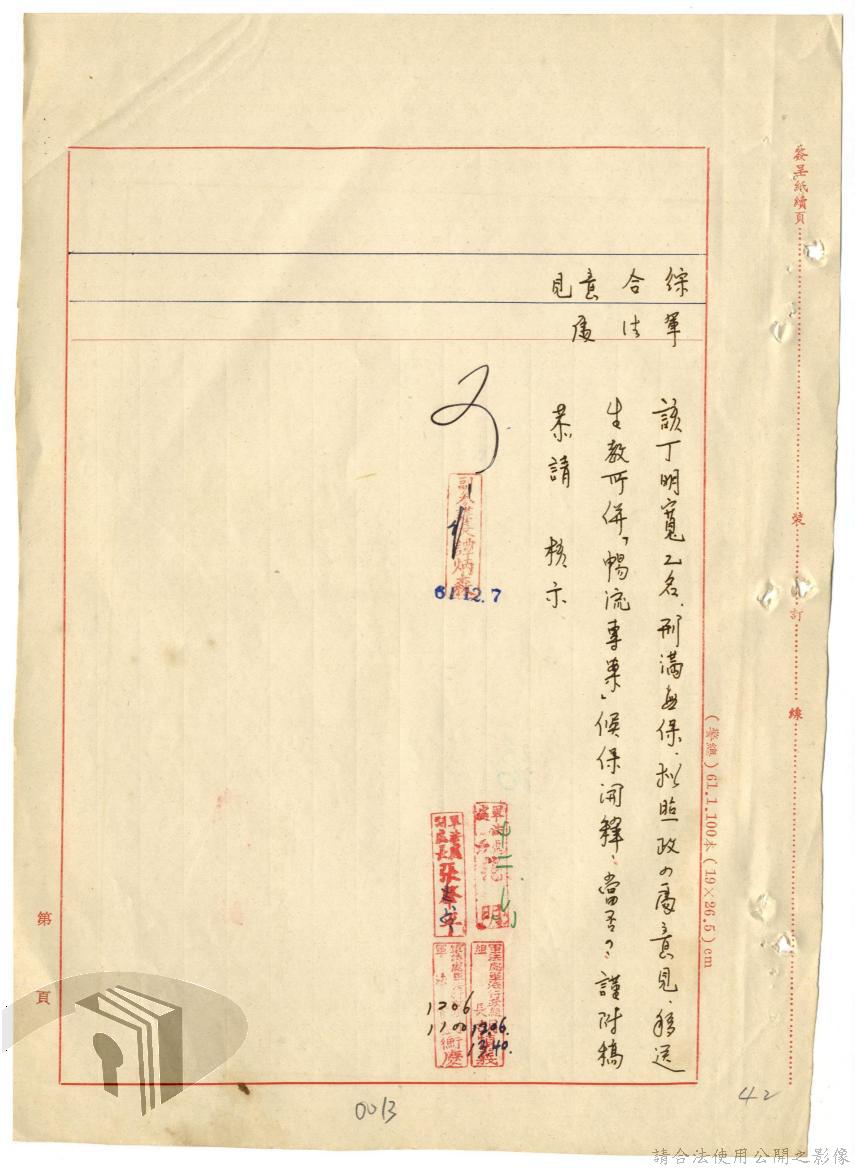 簽呈紙續頁
裝
訂
線
(警總)61.1.100本(19×26.5)cm
綜合意見
軍法處
該丁明寬乙名、刑滿無保、擬照政四處意見、移送
生教所併「暢流專案」候保開釋、當否?謹附稿
恭請 核示
副參謀長譚炳森
61.12.7
軍法處
軍法處副處長張
1206
1100
1206
1340
第 頁
0013
42
請合法使用公開之影像